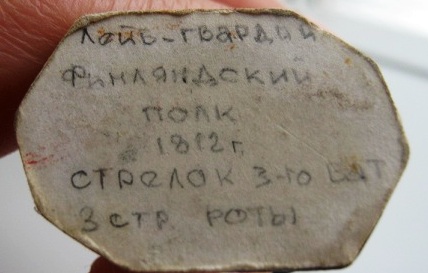 Лейб-гвардии
Финляндский
полк
1812 г.
СТРЕЛОК 3-го БАТ
3 стр РОТЫ